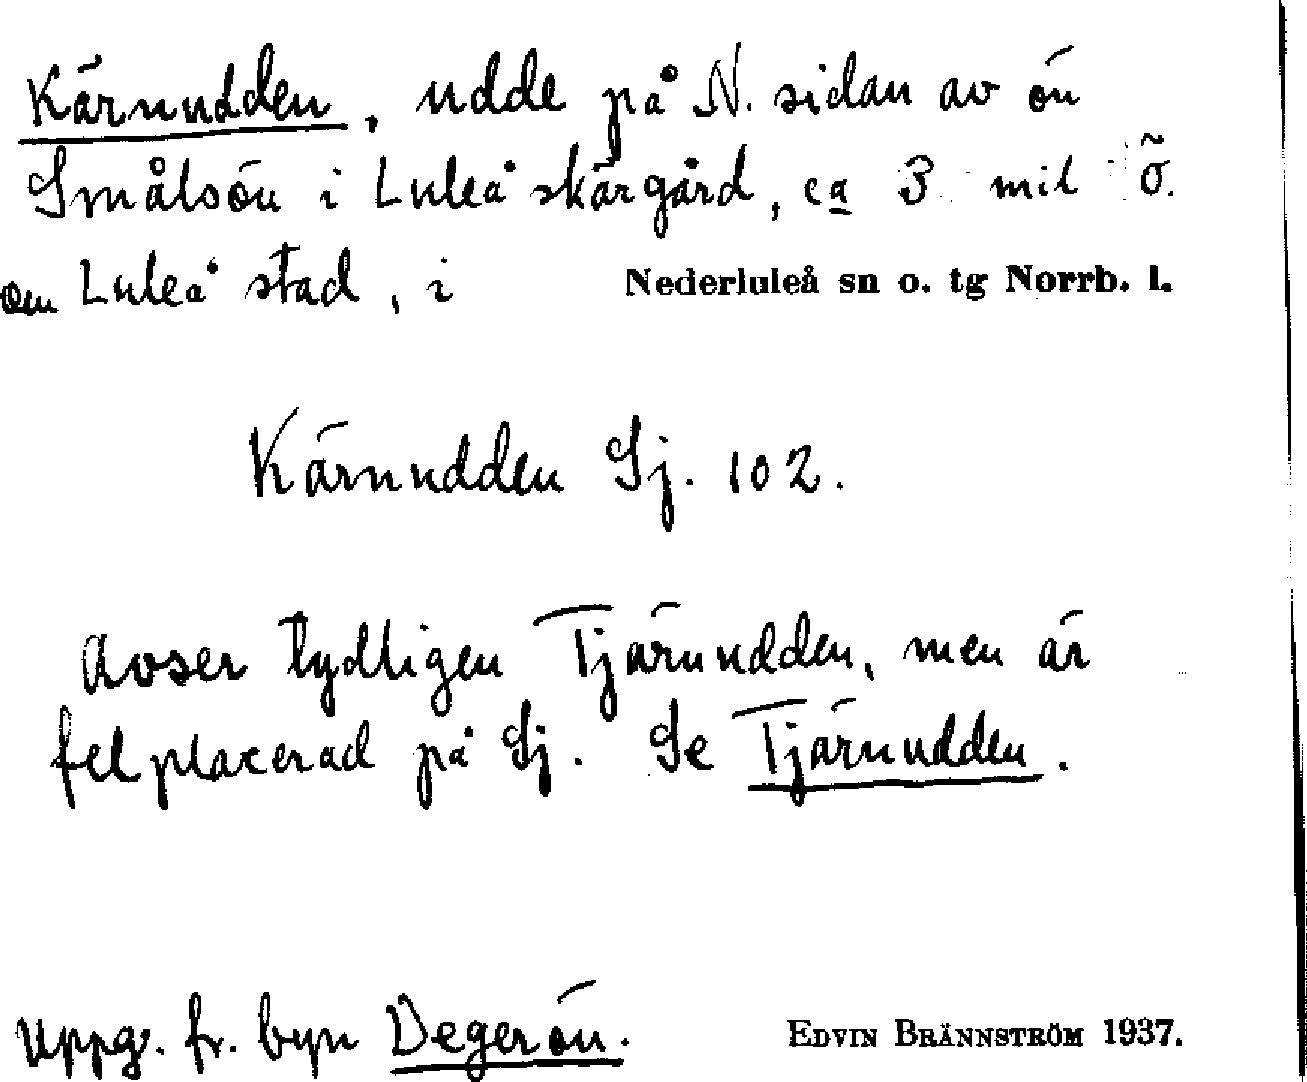 Kärnudden, udde på N. sidan av ön
Smålsön i Luleå skärgård, ca 3 mil ö.
om Luleå stad, i Nederluleå sn o. tg Norrb. l.
Kärnudden Sj. 102.
Avser tydligen Tjärnudden, men är
felplacerad på Sj. Se Tjärnudden.
Uppg. fr. byn Degerön. EDVIN BRÄNNSTRÖM 1937.